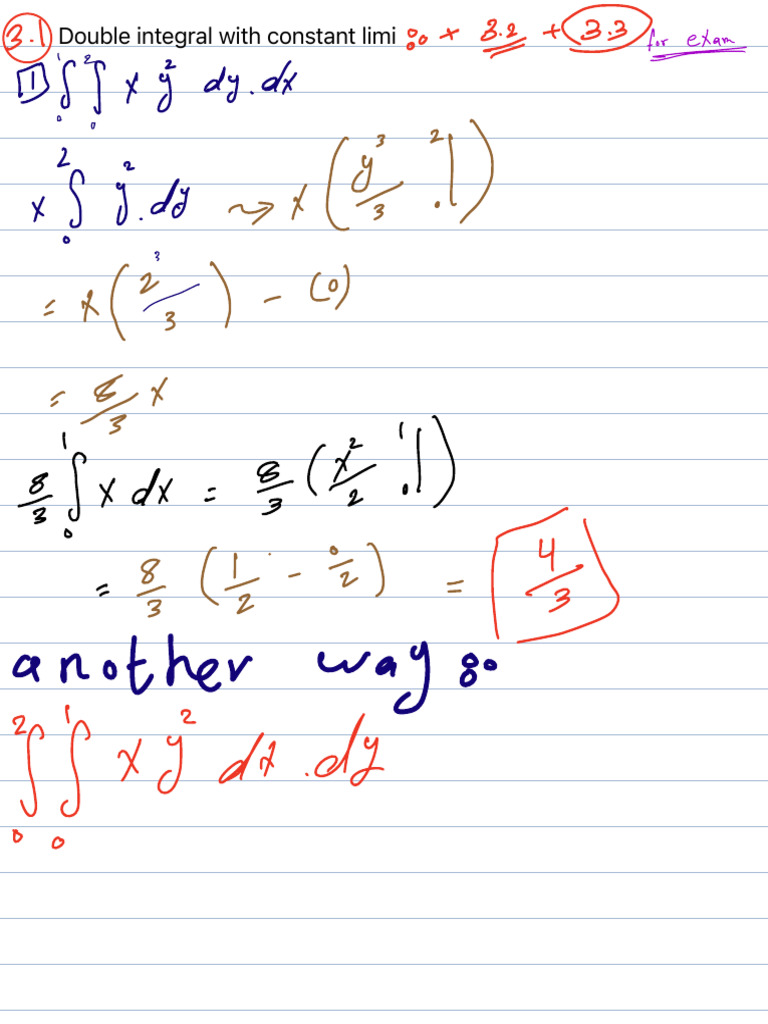 3.1 Double integral with constant limi : + 3.2 + 3.3 for exam
1 ∫₀¹ ∫₀² x y² dy.dx
x ∫₀² y².dy ⇝ x ( y³/3 |₀² )
= x ( 2³/3 ) - (0)
= 8/3 x
8/3 ∫₀¹ x dx = 8/3 ( x²/2 |₀¹ )
= 8/3 ( 1/2 - 0/2 ) = 4/3
another way :
∫₀² ∫₀¹ x y² dx.dy